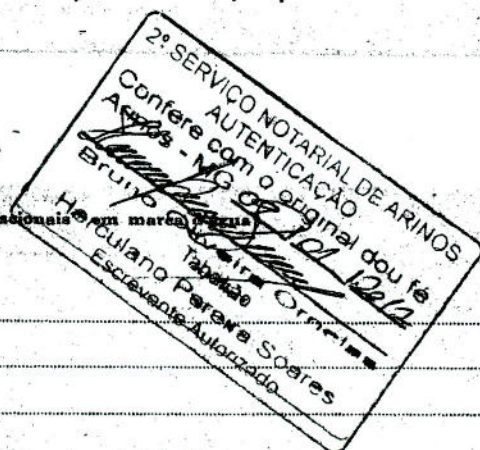 2º SERVIÇO NOTARIAL DE ARINOS
AUTENTICAÇÃO
Confere com o original dou fé
Arinos - MG 09 01
Bruno
Tabelião
Herculano Pereira Soares
Escrevente Autorizado
em marca